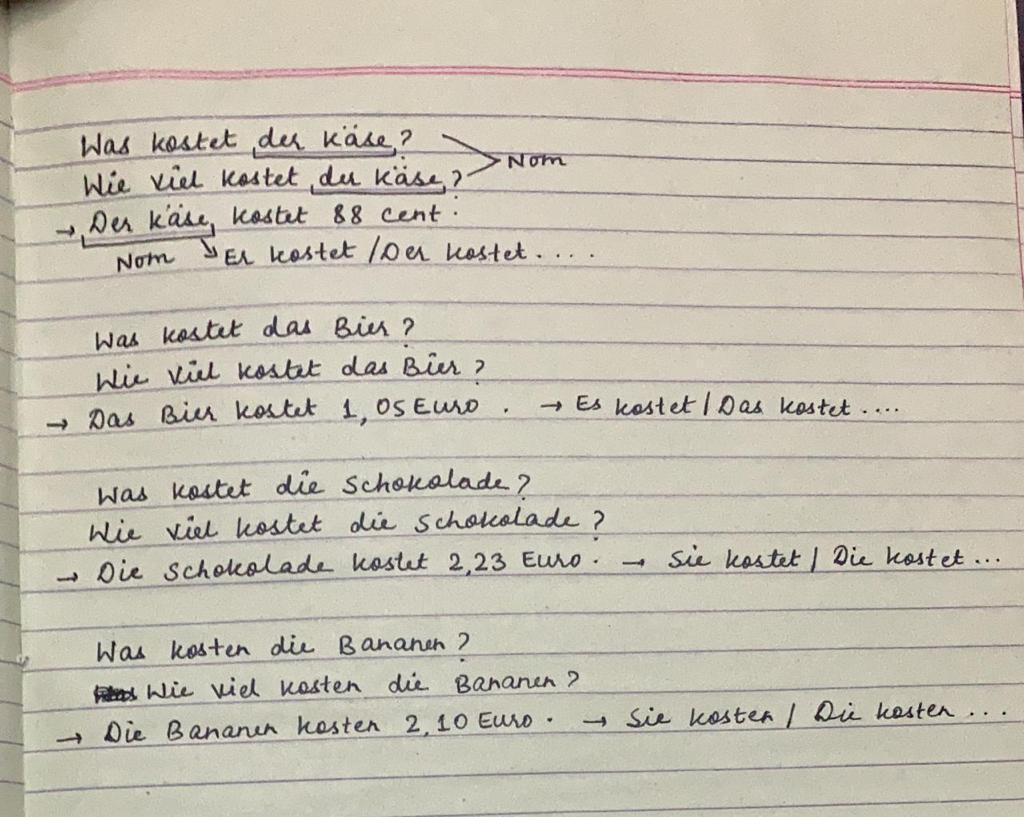 Was kostet der Käse?
Wie viel kostet der Käse? Nom
→ Der Käse kostet 88 cent.
Nom ↘ Er kostet / Der kostet....
Was kostet das Bier?
Wie viel kostet das Bier?
→ Das Bier kostet 1,05 Euro. → Es kostet / Das kostet....
Was kostet die Schokolade?
Wie viel kostet die Schokolade?
→ Die Schokolade kostet 2,23 Euro. → Sie kostet / Die kostet...
Was kosten die Bananen?
Wie viel kosten die Bananen?
→ Die Bananen kosten 2,10 Euro. → Sie kosten / Die kosten...